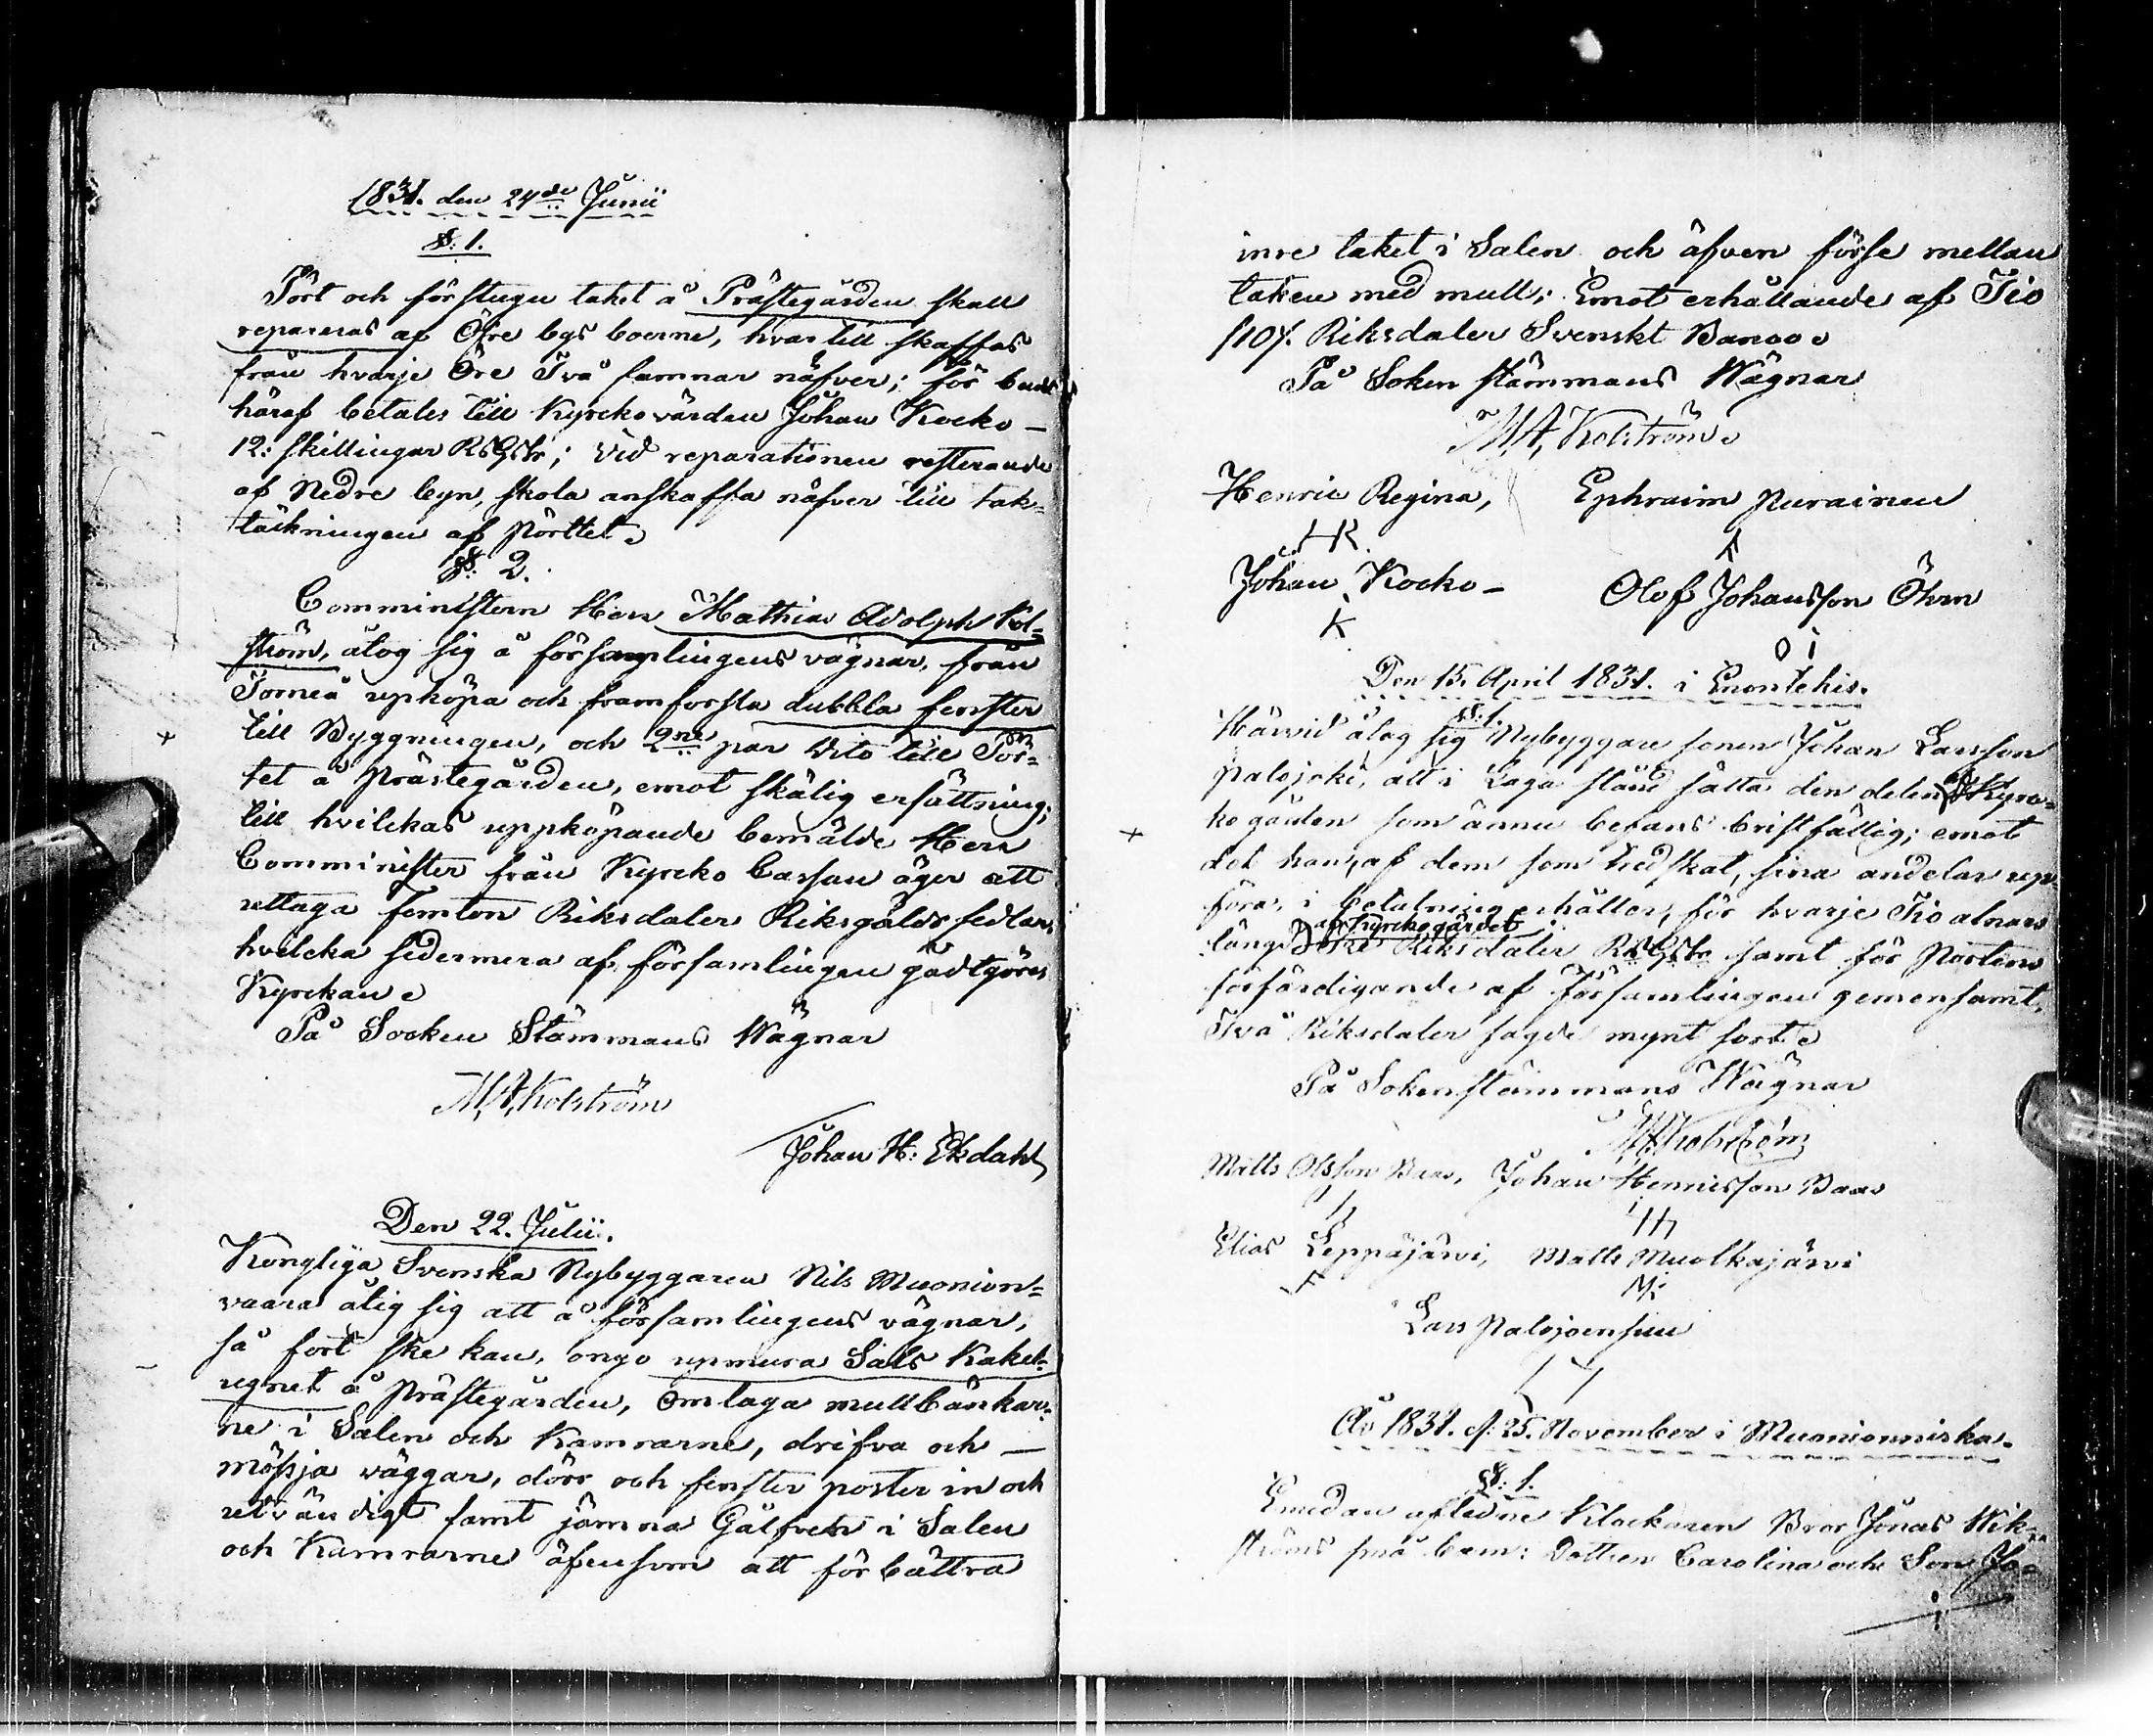 1831. den 24de Junii
§: 1.
Pört och förstugu taket å Prästegården skall
repareras af Öfre bys boerne, hvartill skaffas
från hvarje Öre Två famnar näfver; för
häraf betales till Kyrckovärden Johan Kocko –
12: skillingar RsGs; vid reparationen resterande
af Nedre byn, skola anskaffa näfver till tak=
täckningen af pörttet.
§: 2.
Comministern Herr Mathias Adolph Kol=
ström, åtog sig å församplingens vägnar, från
Torneå upköpa och framforsla dubbla fenster
till Byggningen, och 2ne par dito till Pör=
tet å prästegården, emot skälig ersättning;
till hvilckas uppköpande bemälde Herr
Comminister från Kyrcko Cassan äger att
uttaga femton Riksdaler Riksgälds sedlar,
hvilcka sedermera af församlingen godtgöres
Kyrckan.
På Socken Stämmans Wägnar
M. A. Kolström
Johan H: Ekdahl
Den 22. Julii.
Kongliga Svenska Nybyggaren Nils Muonion=
vaara åtig sig att å församlingens vägnar,
så fort ske kan, ongo upmura Sals Kakel=
ugnet å prästegården, omlaga mullbänkar=
ne i Salen och Kamrarne, drifva och –
mössja väggar, dörr och fenster poster in och
utvändigt samt jämna Gålfven i Salen
och Kamrarne äfensom att förbättra
inre taket i Salen och äfven förse mellan
taken med mull; Emot erhållande af Tio
/10/. Riksdaler Svenskt Banco.
På Soken stämmans Wägnar
M. A. Kolström.
Henric Regina, Ephraim purainen
HR.
Johan Kocko – Olof Johansson Öhrn
K
O i
Den 15. April 1831. i Enontekis.
§: 1.
Härvid åtog sig Nybyggare sonen Johan Larsson
palojoki, att i Laga stånd sätta den delen af Kyrc=
ko gården som ännu befans bristfällig; emot
det han, af dem som tredskat, sina andelar up
föra, i betalning erhåller, för hvarje Tio alnars
af Kyrckogärdet
längd Riksdaler RsGs samt för portens
förfärdigande af församlingen gemensamt,
Två Riksdaler sagde mynt sort.
På Sokenstämmans Wägnar
M. A. Kolström
Matts Olsson Baas, Johan Hennisson Baas
Elias Leppäjärvi, Matts Muotkajärvi
M:
Lars palojoensuu
Åo 1831. d. 25. November i Muonionniska.
§: 1.
Emedan aflidne Klockaren Bror Jonas Wik=
ströms små barn: Dottren Carolina och Son Jo=